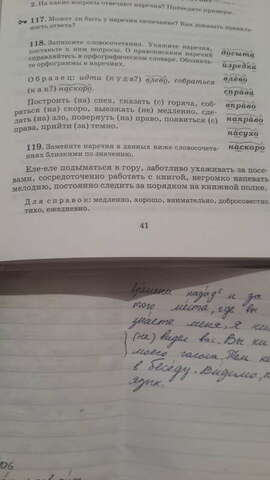 2. На какие вопросы отвечают наречия? Приведите примеры.
117. Может ли быть у наречия окончание? Как доказать правиль-
ность ответа?
118. Запишите словосочетания. Укажите наречия,
поставьте к ним вопросы. О правописании наречий
справляйтесь в орфографическом словаре. Обозначь-
те орфограммы в наречиях.
Образец: идти (куда?) влево, собраться
(как?) наскоро.
Построить (на) спех, сказать (с) горяча, соб-
раться (на) скоро, выезжать (не) медленно, сде-
лать (на) зло, повернуть (на) право, появиться (с)
права, прийти (за) темно.
досыта
изредка
влево
справа
вправо
направо
насухо
наскоро
119. Замените наречия в данных ниже словосочета-
ниях близкими по значению.
Еле-еле подыматься в гору, заботливо ухаживать за посе-
вами, сосредоточенно работать с книгой, негромко напевать
мелодию, постоянно следить за порядком на книжной полке.
Для справок: медленно, хорошо, внимательно, добросовестно,
тихо, ежедневно.
41
назад и за
того места, где вы
знаете меня. Я
(не) видел вас. Вы
моего голоса. Тем
в беседу. Видимо,
язык.
06